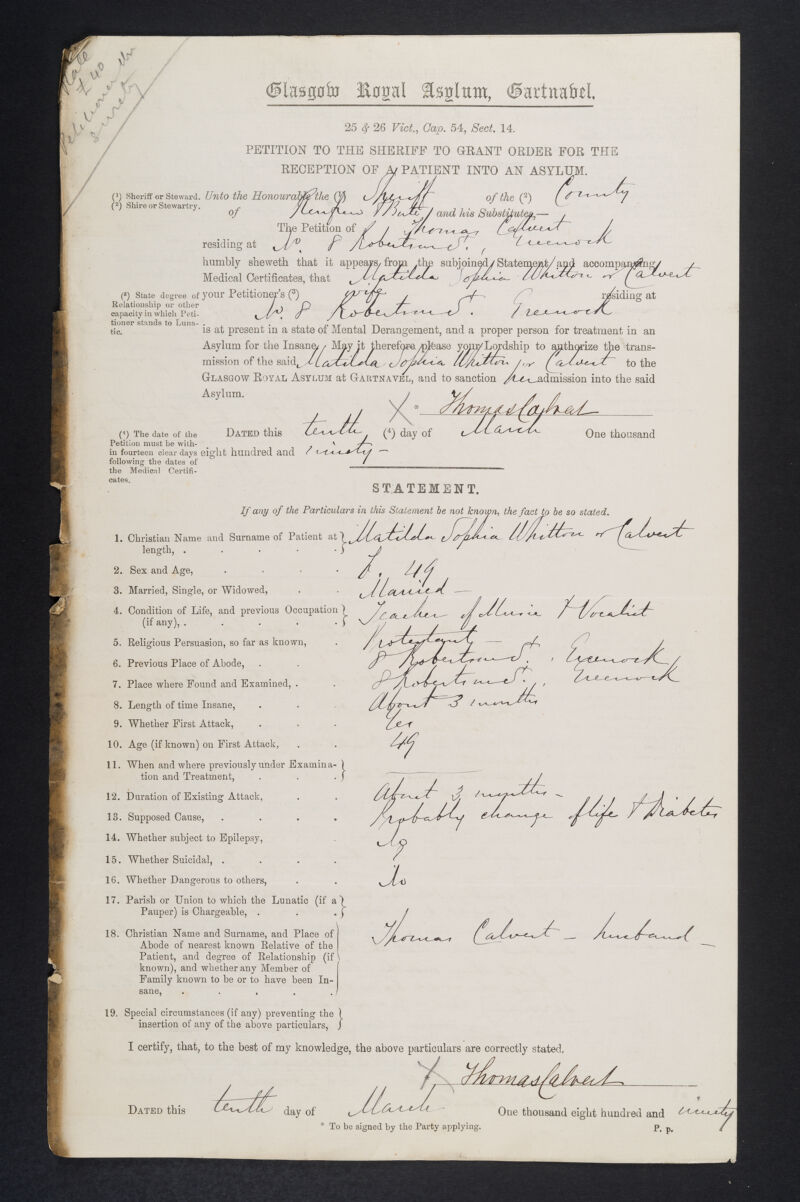 Rate
£40
Petitioner
surety
Glasgow Royal Asylum, Gartnabel.
25 & 26 Vict., Cap. 54, Sect. 14.
PETITION TO THE SHERIFF TO GRANT ORDER FOR THE
RECEPTION OF A PATIENT INTO AN ASYLUM.
(¹) Sheriff or Steward.
(²) Shire or Stewartry.
Unto the Honourable the (¹) Sheriff of the (²) County
of Renfrew & Bute and his Substitutes,—
The Petition of Thomas Calvert
residing at No. 8 Robertson St., Greenock
humbly sheweth that it appears from the subjoined Statement and accompanying
Medical Certificates, that Matilda Sophia Whitton or Calvert
(³) State degree of
Relationship or other
capacity in which Peti-
tioner stands to Luna-
tic.
your Petitioner's (³) wife residing at
No. 8 Robertson St. Greenock
is at present in a state of Mental Derangement, and a proper person for treatment in an
Asylum for the Insane. May it therefore please your Lordship to authorize the trans-
mission of the said Matilda Sophia Whitton or Calvert to the
GLASGOW ROYAL ASYLUM at GARTNAVEL, and to sanction her admission into the said
Asylum.
* Thomas Calvert
(⁴) The date of the
Petition must be with-
in fourteen clear days
following the dates of
the Medical Certifi-
cates.
DATED this tenth (⁴) day of March One thousand
eight hundred and ninety —
STATEMENT.
If any of the Particulars in this Statement be not known, the fact to be so stated.
1. Christian Name and Surname of Patient at
length, . Matilda Sophia Whitton or Calvert
2. Sex and Age, F. 49
3. Married, Single, or Widowed, Married —
4. Condition of Life, and previous Occupation
(if any), . Teacher of Music & Vocalist
5. Religious Persuasion, so far as known, Protestant —
6. Previous Place of Abode, 8 Robertson St., Greenock
7. Place where Found and Examined, 8 Robertson St., Greenock
8. Length of time Insane, About 3 months
9. Whether First Attack, Yes
10. Age (if known) on First Attack, 49
11. When and where previously under Examina-
tion and Treatment, —
12. Duration of Existing Attack, About 3 months —
13. Supposed Cause, Probably change of life & Diabetes
14. Whether subject to Epilepsy, No
15. Whether Suicidal, .
16. Whether Dangerous to others, No
17. Parish or Union to which the Lunatic (if a
Pauper) is Chargeable, .
18. Christian Name and Surname, and Place of
Abode of nearest known Relative of the
Patient, and degree of Relationship (if
known), and whether any Member of
Family known to be or to have been In-
sane, Thomas Calvert — husband —
19. Special circumstances (if any) preventing the
insertion of any of the above particulars,
I certify, that, to the best of my knowledge, the above particulars are correctly stated.
Thomas Calvert
DATED this tenth day of March One thousand eight hundred and ninety
* To be signed by the Party applying.
P. p.